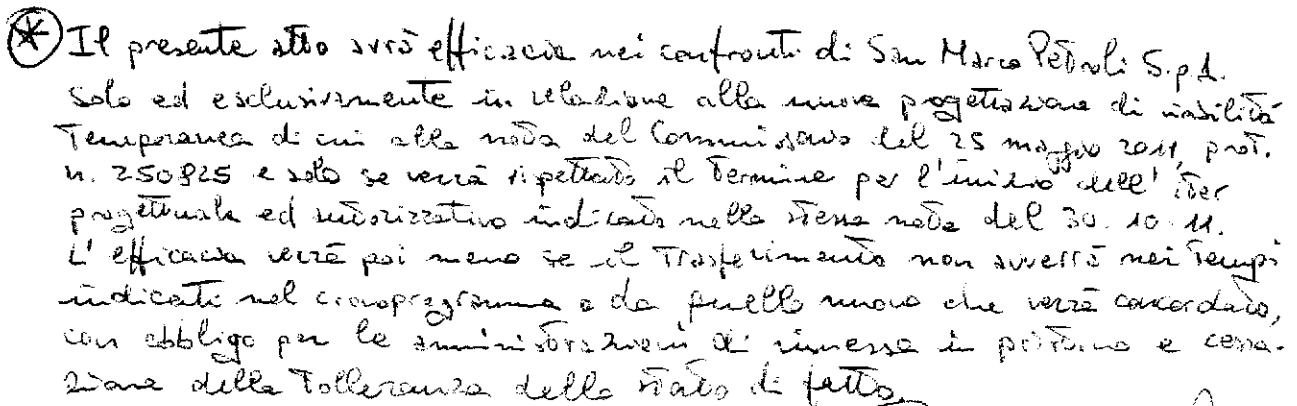 * Il presente atto avrà efficacia nei confronti di San Marco Petroli S.p.A.
solo ed esclusivamente in relazione alla nuova progettazione di viabilità
temporanea di cui alla nota del Commissario del 25 maggio 2011, prot.
n. 250825 e solo se verrà rispettato il termine per l'inizio dell'iter
progettuale ed autorizzativo indicato nella stessa nota del 30.10.11.
L'efficacia verrà poi meno se il trasferimento non avverrà nei tempi
indicati nel cronoprogramma o da quello nuovo che verrà concordato,
con obbligo per le amministrazioni di rimessa in pristino e cessa-
zione della tolleranza dello stato di fatto.